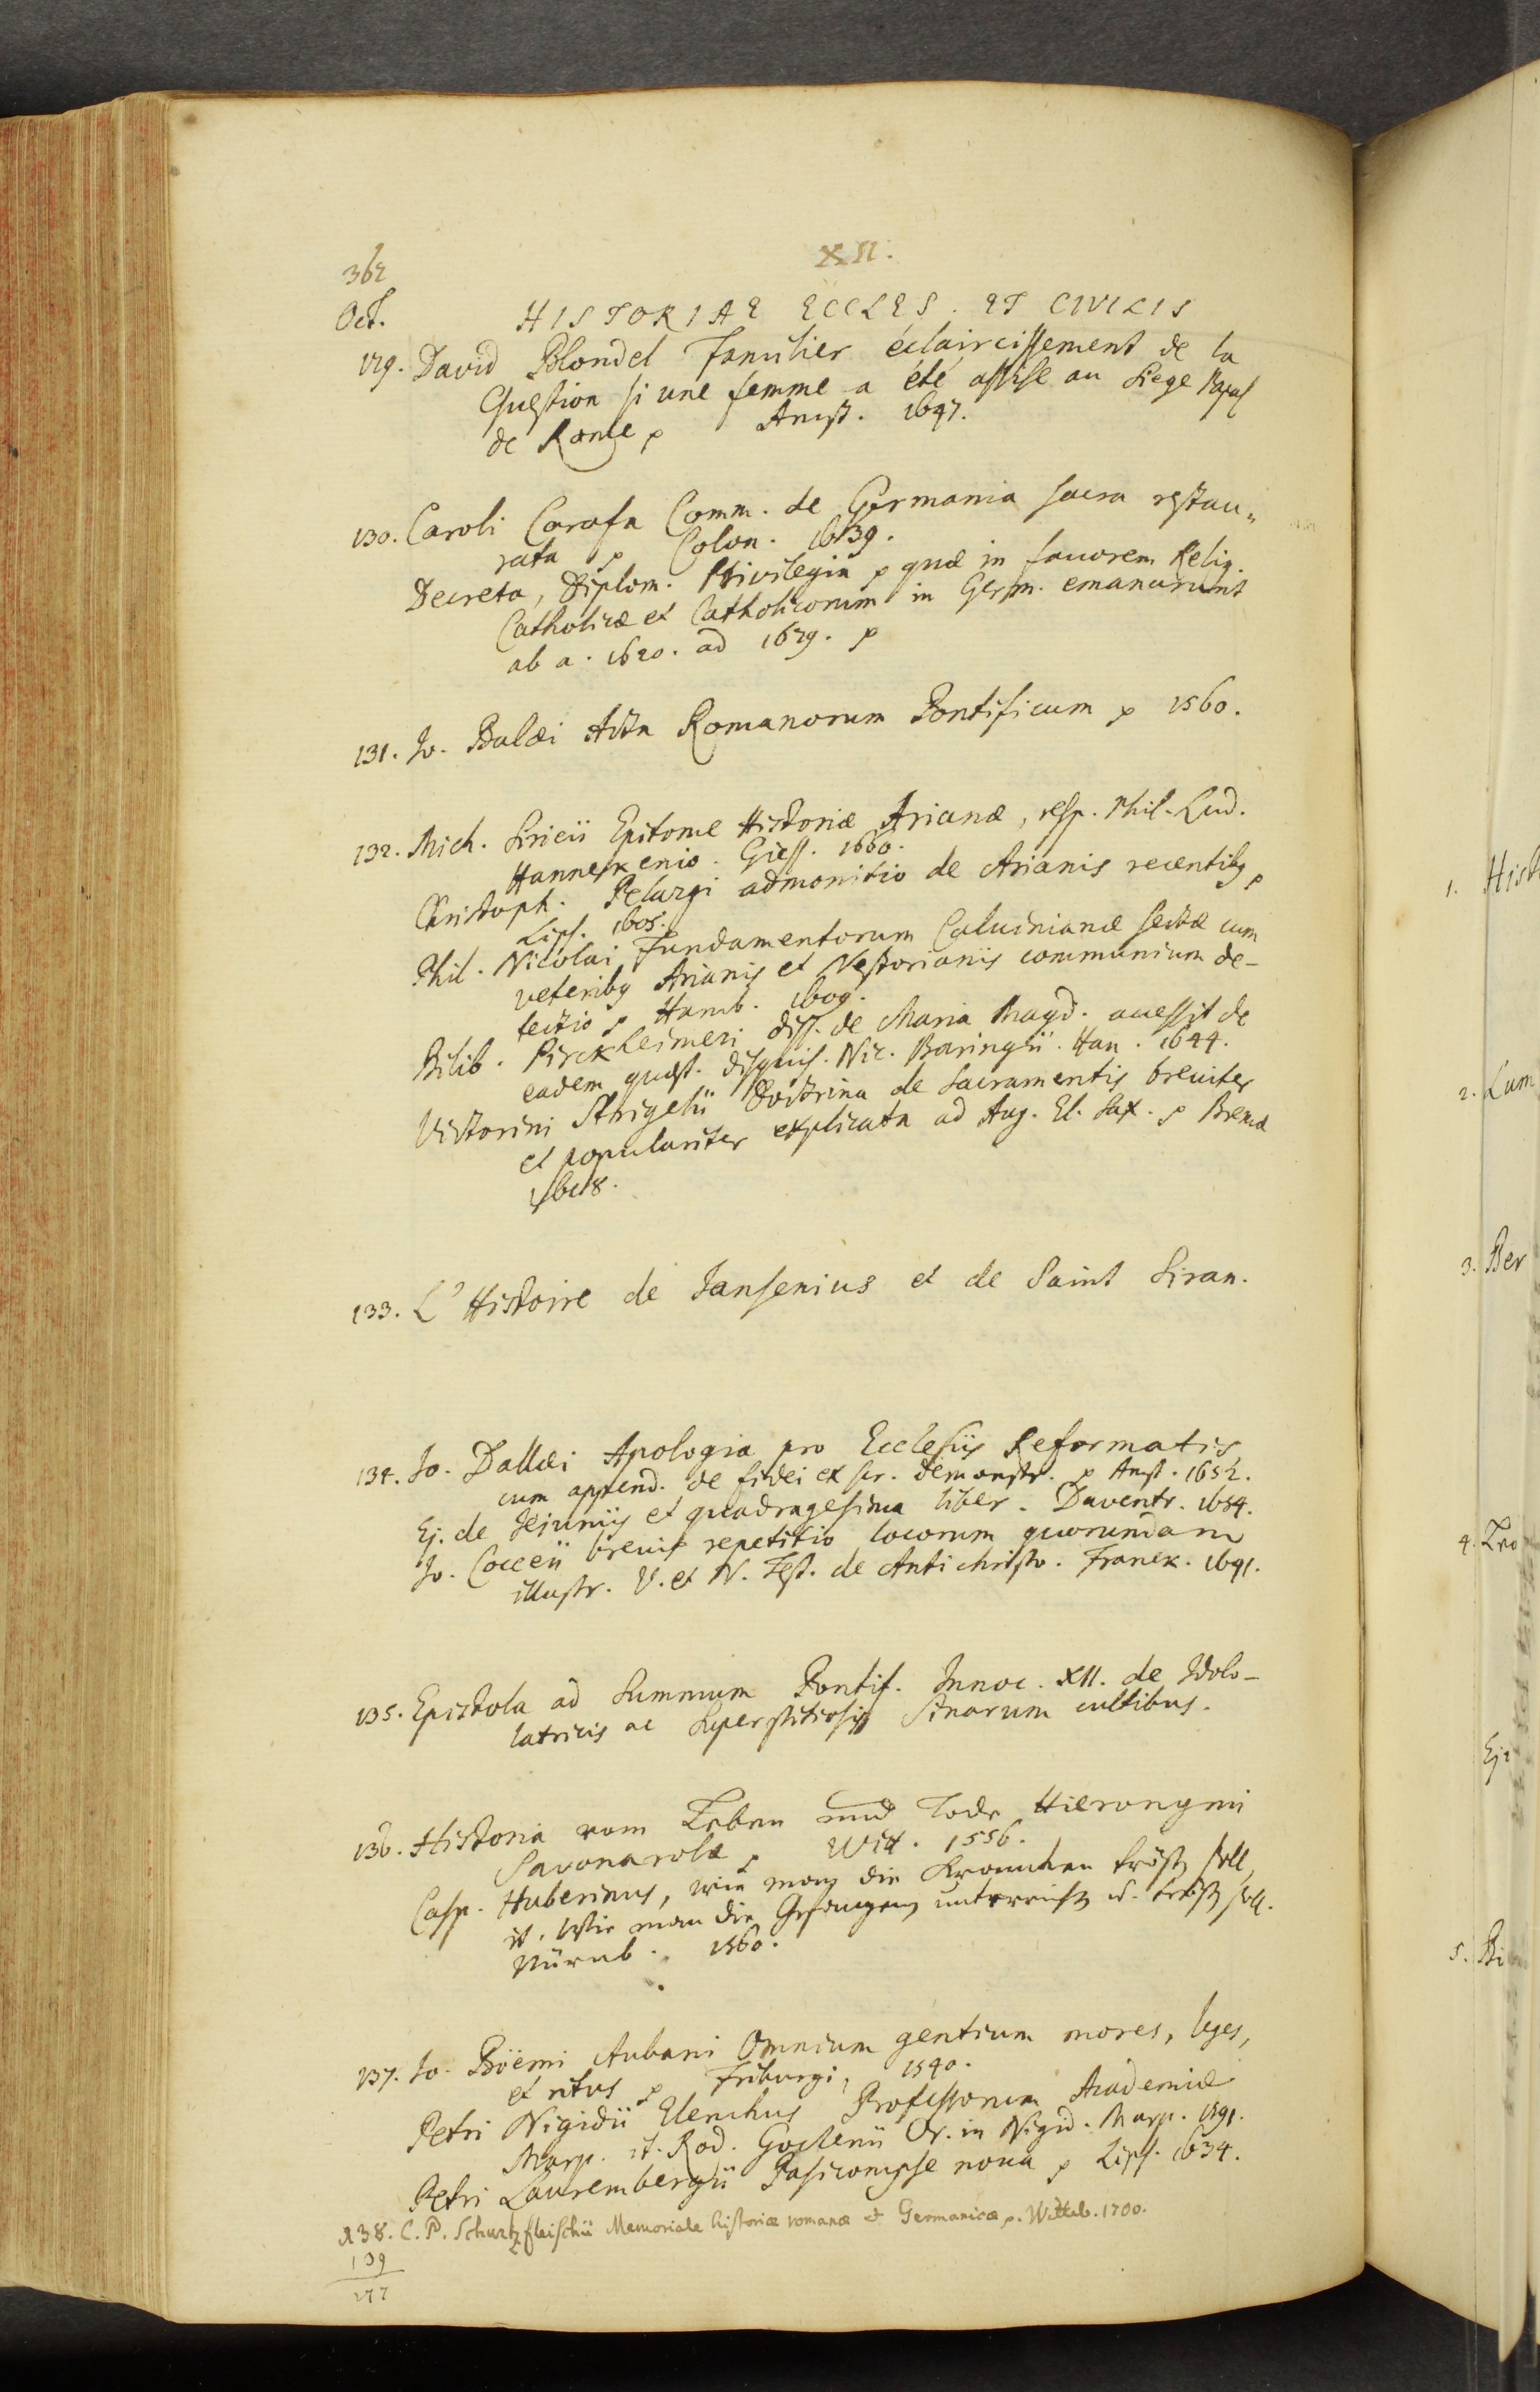 362
XII.
Oct.
HISTORIAE ECCLES. ET CIVILIS
129. David Blondel Familier éclaircissement de la
Question si une femme a été assise au Siege Papal
de Rome p Amst. 1647.
130. Caroli Carafa Comm. de Germania sacra restau„
rata p Colon. 1639.
Decreta, Diplom. Privilegia p quæ in favorem Relig.
Catholicæ et Catholicorum in Germ. emanarunt
ab a. 1620. ad 1629. p
131. Jo. Balæi Acta Romanorum Pontificum p 1560.
132. Mich. Siricii Epitome Historiæ Arianæ, resp. Phil. Lud.
Hannekenio. Giess. 1660.
Christoph. Pelargi admonitio de Arianis recentibq p
Lips. 1605.
Phil. Nicolai Fundamentorum Calvinianæ sectæ cum
veteribq Arianis et Nestorianis communium de-
tectio p Hamb. 1609.
Bilib. Pirckheimeri diss. de Maria Magd. accessit de
eadem quæst. disquis. Nic. Baringii. Han. 1644.
Victorini Strigelii Doctrina de Sacramentis breviter
et populariter explicata ad Aug. El. Sax. p Bremæ
133. L'Histoire de Jansenius et de Saint Siran.
134. Jo. Dallæi Apologia pro Ecclesiis Reformatis
cum append. de fidei ex scr. demonstr. p Amst. 1652.
Ej. de Jejuniis et quadragesima liber. Daventr. 1654.
Jo. Cocceii brevis repetitio locorum quorundam
illustr. V. et N. Test. de Antichristo. Franek. 1641.
135. Epistola ad Summum Pontif. Innoc. XII. de Idolo-
latricis ac Superstitiosis Sinarum cultibus.
136. Historia vom Leben und Tode Hieronymi
Savonarolæ p Witt. 1556.
Casp. Huberinus, wie man die Krancken tröstē soll,
it. Wie man die Gefangenē unterrichtē u. tröstē soll.
Nürnb. 1560.
137. Jo. Boëmi Aubani Omnium gentium mores, leges,
et ritus p Friburgi, 1540.
Petri Nigidii Elenchus Professorum Academiæ
Marp. it. Rod. Goclenii Or. in Nigid. Marp. 1591.
Petri Laurembergii Pasicompse nova p Lips. 1634.
138. C. P. Schurtzfleischii Memoriale historiæ romanæ et Germanicæ p. Witteb. 1700.
139
277
1. Hist
2. Lum
3. Ber
4.
Ej
5. Bi